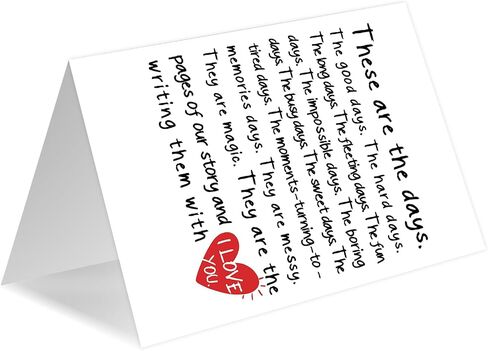 These are the days.
The good days. The hard days.
The long days. The fleeting days. The fun
days. The impossible days. The boring
days. The busy days. The sweet days. The
tired days. The moments-turning-to-
memories days. They are messy.
They are magic. They are the
pages of our story and
writing them with
I LOVE
YOU